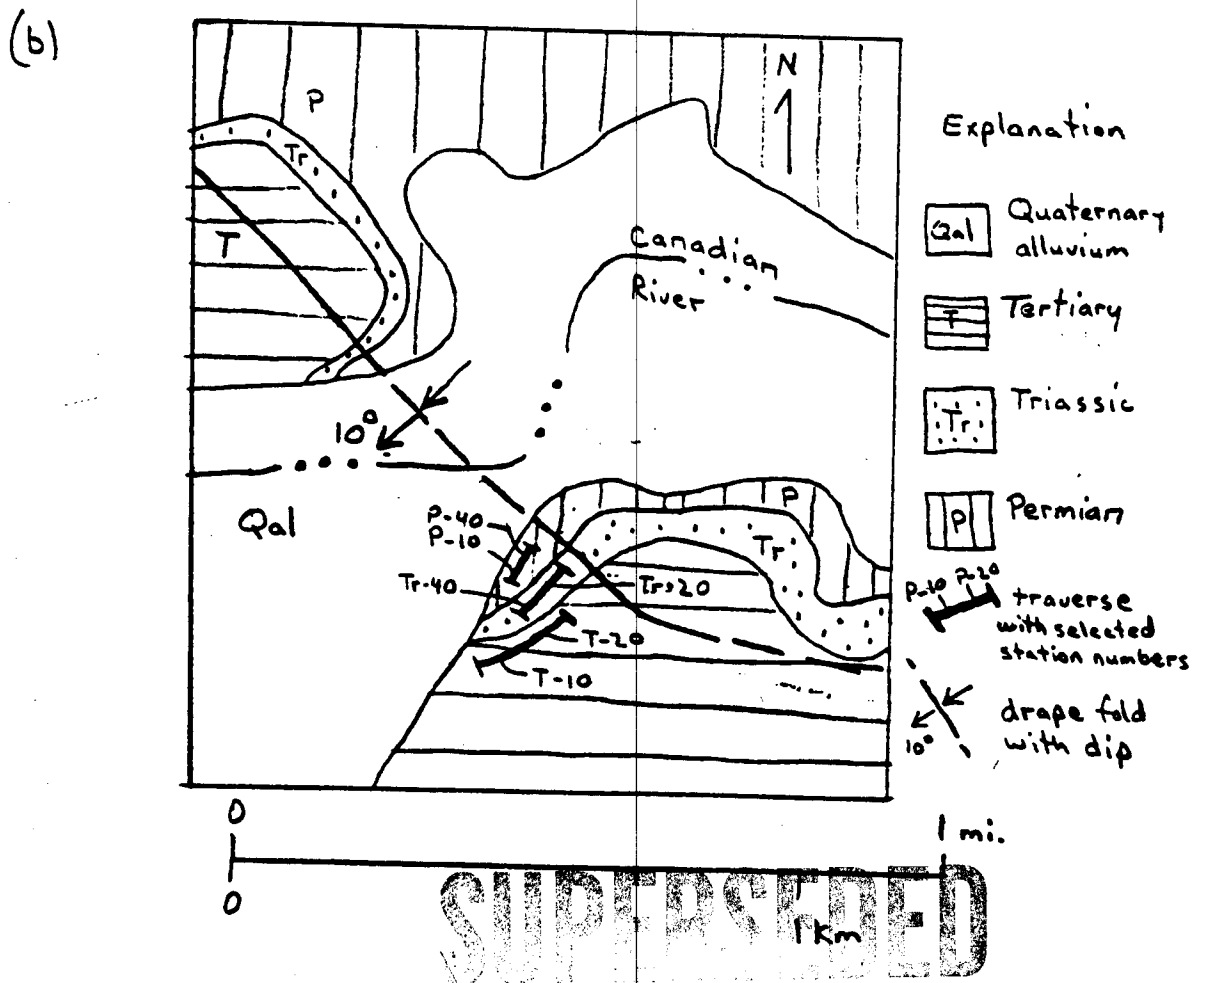 (b)
P
N
Tr
T
Canadian
River
10°
Qal
P-40
P-10
Tr-40
P
Tr
Tr-20
T-20
T-10
Explanation
Qal
Quaternary
alluvium
T
Tertiary
Tr
Triassic
P
Permian
P-10 P-20
traverse
with selected
station numbers
10°
drape fold
with dip
0
1 mi.
0
1 Km
SUPERSEDED